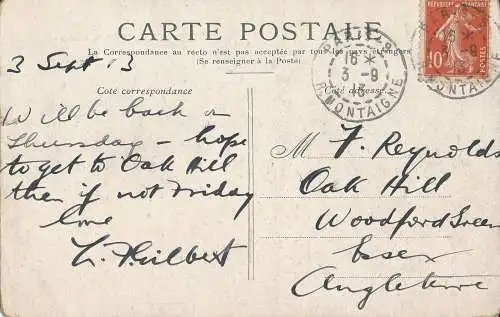 CARTE POSTALE
La Correspondance au recto n'est pas acceptée par tous les pays étrangers
(Se renseigner à la Poste)
3 Sept 13
Coté correspondance
Will be back on
Thursday – hope
to get to Oak Hill
then if not Friday
love
L. Philbert
Coté adresse
M F. Reynolds
Oak Hill
Woodford Green
Essex
Angleterre
16 *
3 - 9
13
R. MONTAIGNE
RÉPUBLIQUE FRANÇAISE
10c
POSTES
16 *
3 - 9
MONTAIGNE